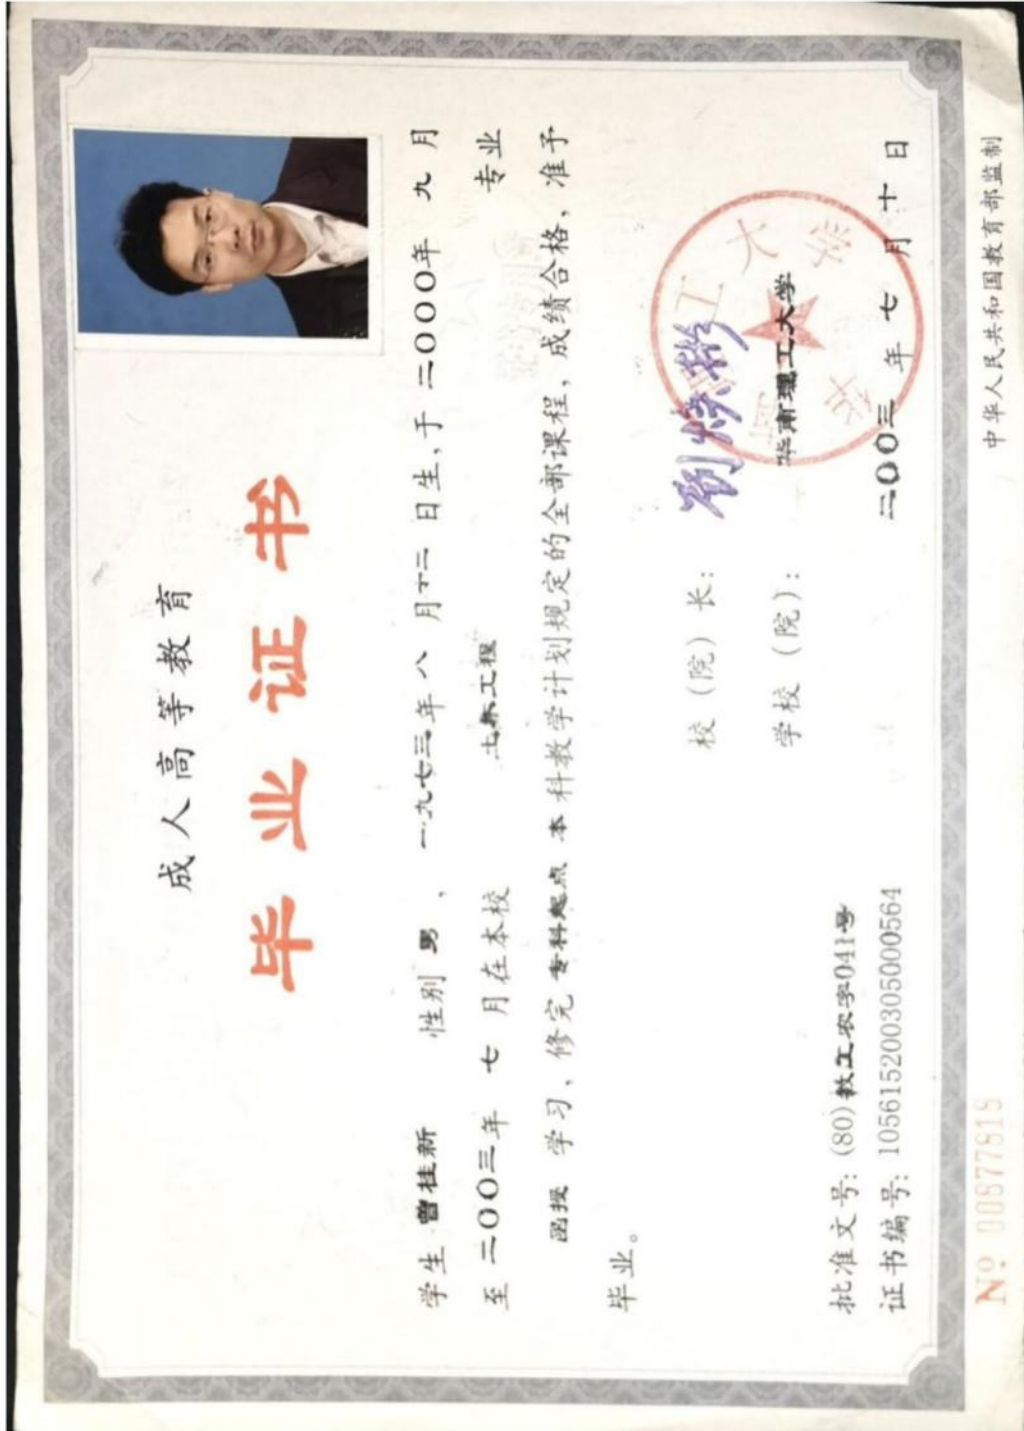 成人高等教育
毕业证书
学生 曾桂新 性别 男 ， 一九七三年 八 月十二 日生，于 二〇〇〇年 九 月
至 二〇〇三年 七 月在本校 土木工程 专业
函授 学习，修完 专科起点 本 科教学计划规定的全部课程，成绩合格，准予
毕业。
校（院）长： 刘焕彬
学校（院）： 华南理工大学
华南理工大学
批准文号：(80)教工农字041号
证书编号：105615200305000564
二〇〇三 年 七 月 十 日
中华人民共和国教育部监制
№ 00877818